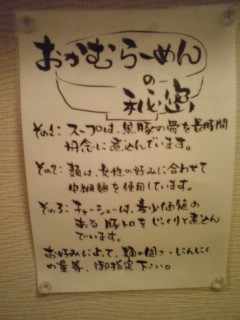 おかむらーめん
の
秘密
その1: スープは、黒豚の骨を長時間
丹念に煮込んでいます。
その2: 麺は、女性の好みに合わせて
中細麺を使用しています。
その3: チャーシューは、希少価値の
ある豚トロをじっくりと煮込ん
でいます。
お好みによって、麺の固さ・にんにく
の量等、御指定下さい。